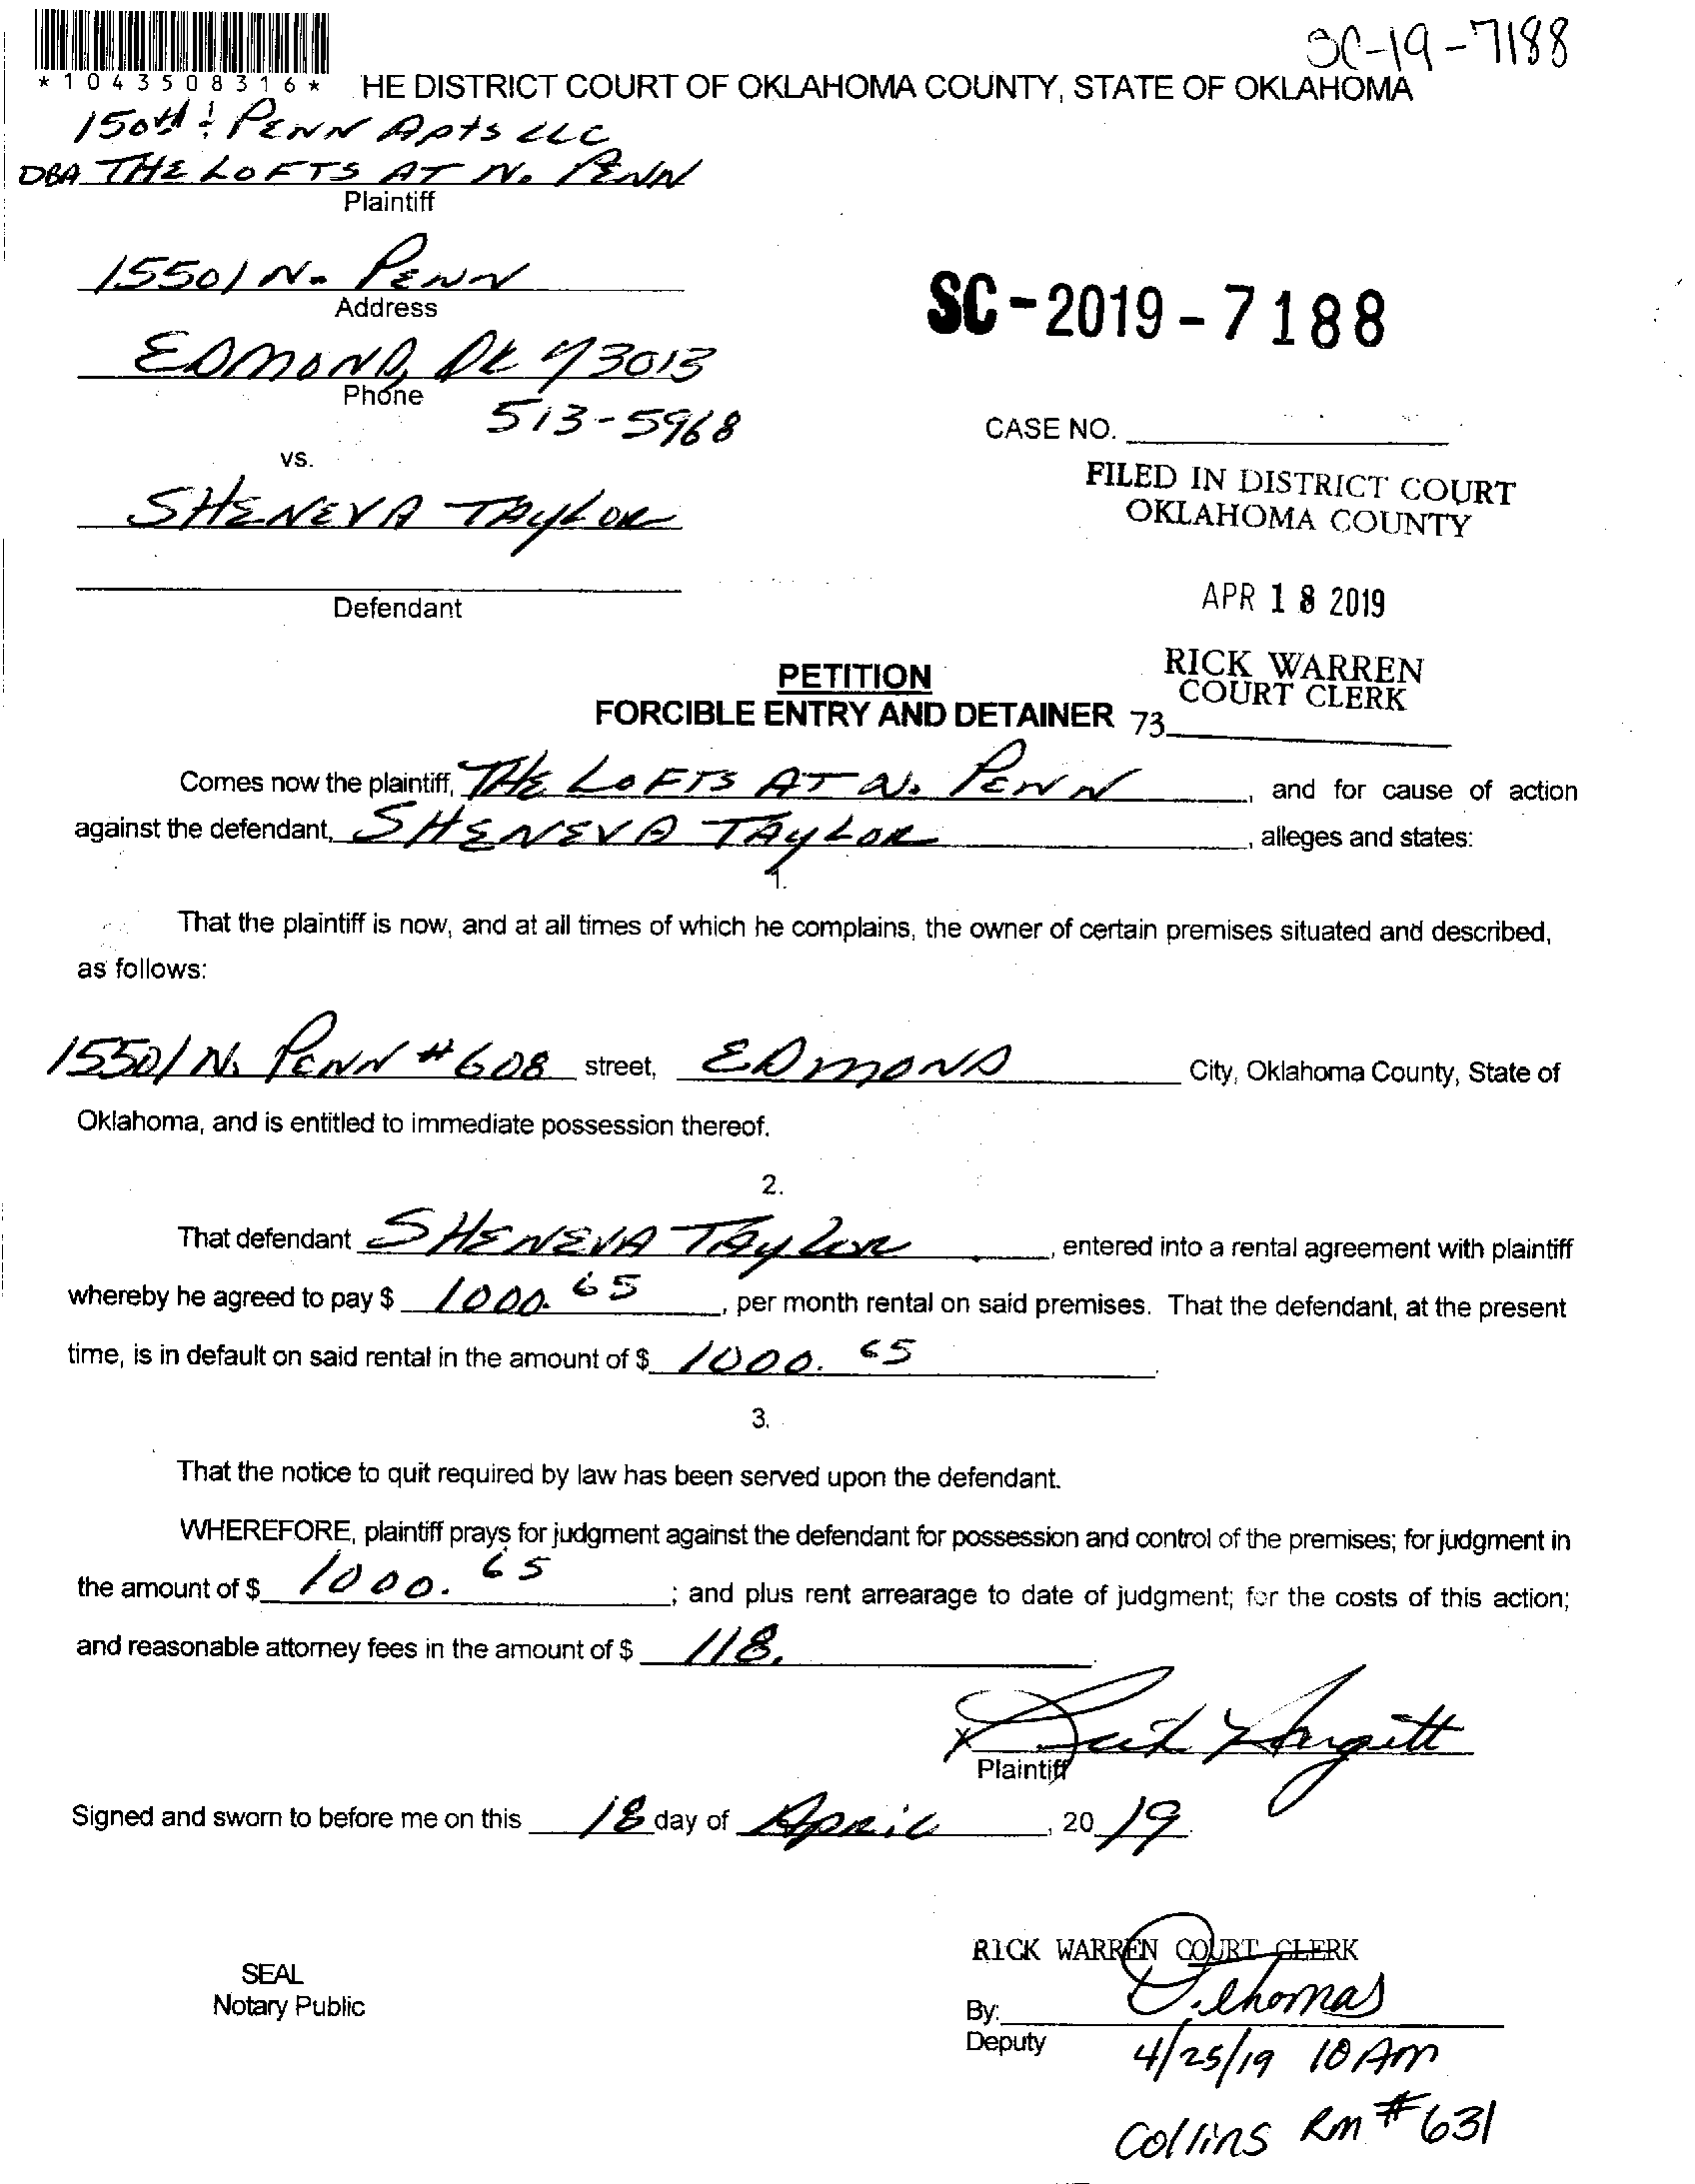 SC-19-7188
*1043508316*
HE DISTRICT COURT OF OKLAHOMA COUNTY, STATE OF OKLAHOMA
150th & PENN Apts LLC
DBA THE LOFTS AT N. PENN
Plaintiff
15501 N. PENN
Address
SC-2019-7188
EDMOND, OK 73013
Phone
513-5968
CASE NO.
vs.
FILED IN DISTRICT COURT
OKLAHOMA COUNTY
SHENEVA TAYLOR
Defendant
APR 18 2019
RICK WARREN
COURT CLERK
PETITION
FORCIBLE ENTRY AND DETAINER 73
Comes now the plaintiff, THE LOFTS AT N. PENN, and for cause of action
against the defendant, SHENEVA TAYLOR, alleges and states:
1.
That the plaintiff is now, and at all times of which he complains, the owner of certain premises situated and described,
as follows:
15501 N. PENN #608 street, EDMOND City, Oklahoma County, State of
Oklahoma, and is entitled to immediate possession thereof.
2.
That defendant SHENEVA TAYLOR, entered into a rental agreement with plaintiff
whereby he agreed to pay $ 1000.65, per month rental on said premises. That the defendant, at the present
time, is in default on said rental in the amount of $ 1000.65.
3.
That the notice to quit required by law has been served upon the defendant.
WHEREFORE, plaintiff prays for judgment against the defendant for possession and control of the premises; for judgment in
the amount of $ 1000.65; and plus rent arrearage to date of judgment; for the costs of this action;
and reasonable attorney fees in the amount of $ 118.
X Hargett
Plaintiff
Signed and sworn to before me on this 18 day of April, 20 19.
RICK WARREN COURT CLERK
SEAL
Notary Public
By: Thomas
Deputy
4/25/19 10 AM
Collins Rm #631